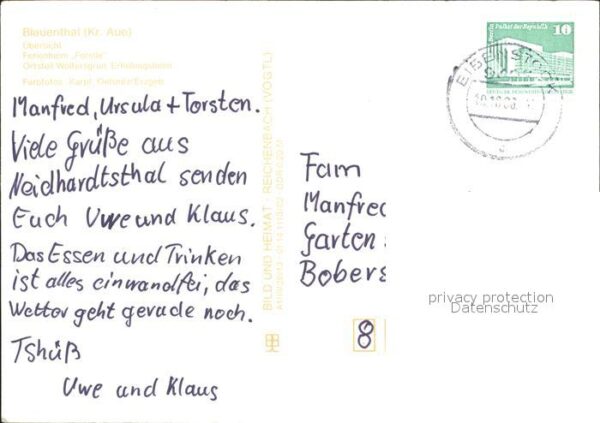 Blauenthal (Kr. Aue)
Übersicht
Ferienheim „Forelle“
Ortsteil Wolfsgrün, Erholungsheim
Farbfotos: Karpf,
Manfred, Ursula + Torsten.
Viele Grüße aus
Neidhardtsthal senden
Euch Uwe und Klaus.
Das Essen und Trinken
ist alles einwandfei, das
Wetter geht gerade noch.
Tshüß
Uwe und Klaus
BILD UND HEIMAT · REICHENBACH (VOGTL)
Berlin, Palast der Republik
10
EIBENSTOCK
Fam
Manfred
Garten
Bobers
8
privacy protection
Datenschutz